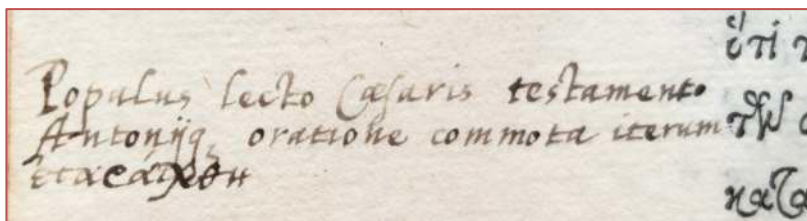 Populus lecto Cæsaris testamento
Antonijq; oratione commota iterum
ὅτι
τῶν